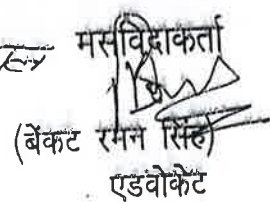 मसविदाकर्ता
(बेंकट रमन सिंह)
एडवोकेट